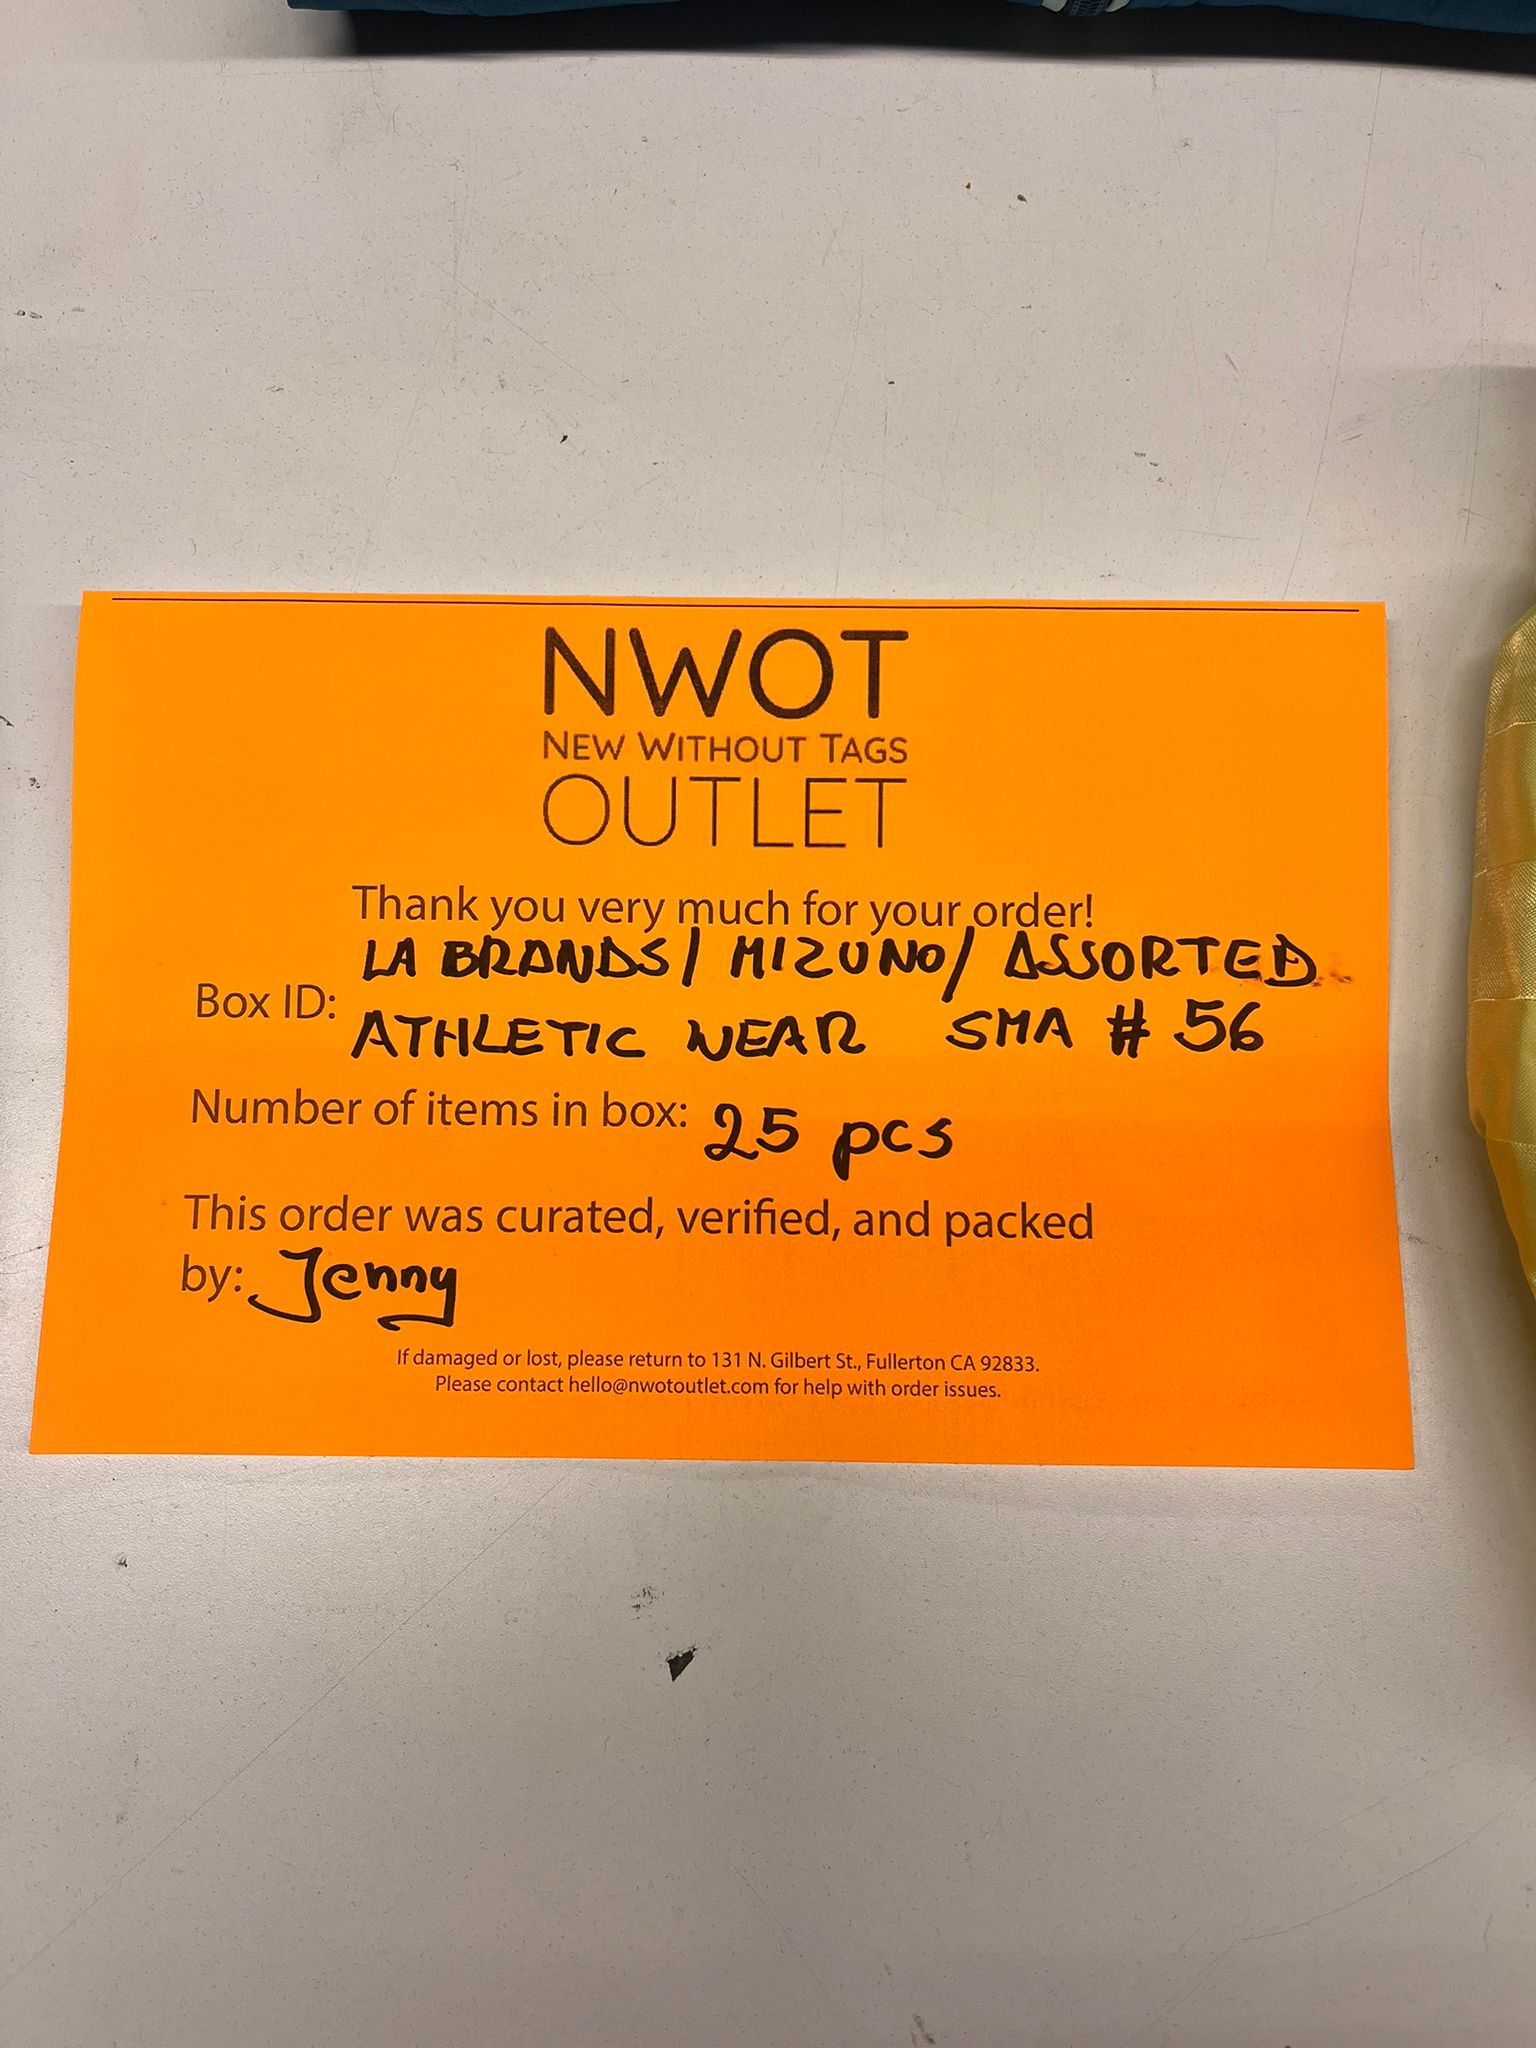 NWOT
NEW WITHOUT TAGS
OUTLET
Thank you very much for your order!
LA BRANDS/ MIZUNO/ ASSORTED
Box ID:
ATHLETIC WEAR SMA # 56
Number of items in box: 25 pcs
This order was curated, verified, and packed
by: Jenny
If damaged or lost, please return to 131 N. Gilbert St., Fullerton CA 92833.
Please contact hello@nwotoutlet.com for help with order issues.